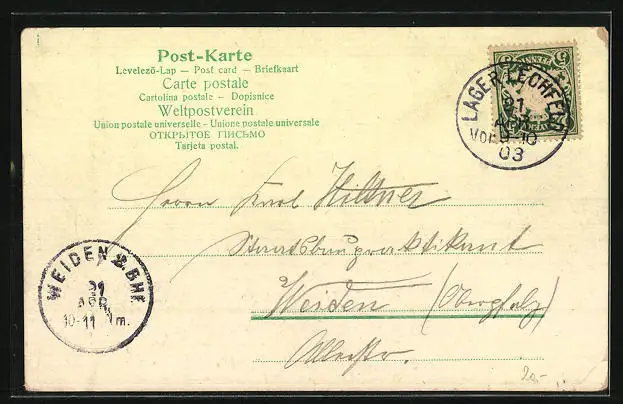 Post-Karte
Levelező-Lap — Post card — Briefkaart
Carte postale
Cartolina postale – Dopisnice
Weltpostverein
Union postale universelle - Unione postale universale
ОТКРЫТОЕ ПИСЬМО
Tarjeta postal.
LAGER LECHFELD
21
APR
Vor. 9-10
03
Herrn Karl Hiltner
Staatsbaupraktikant
Weiden (Oberpfalz)
Allerstr.
WEIDEN 2. BHF.
21
APR.
10-11 Vm.
20,-